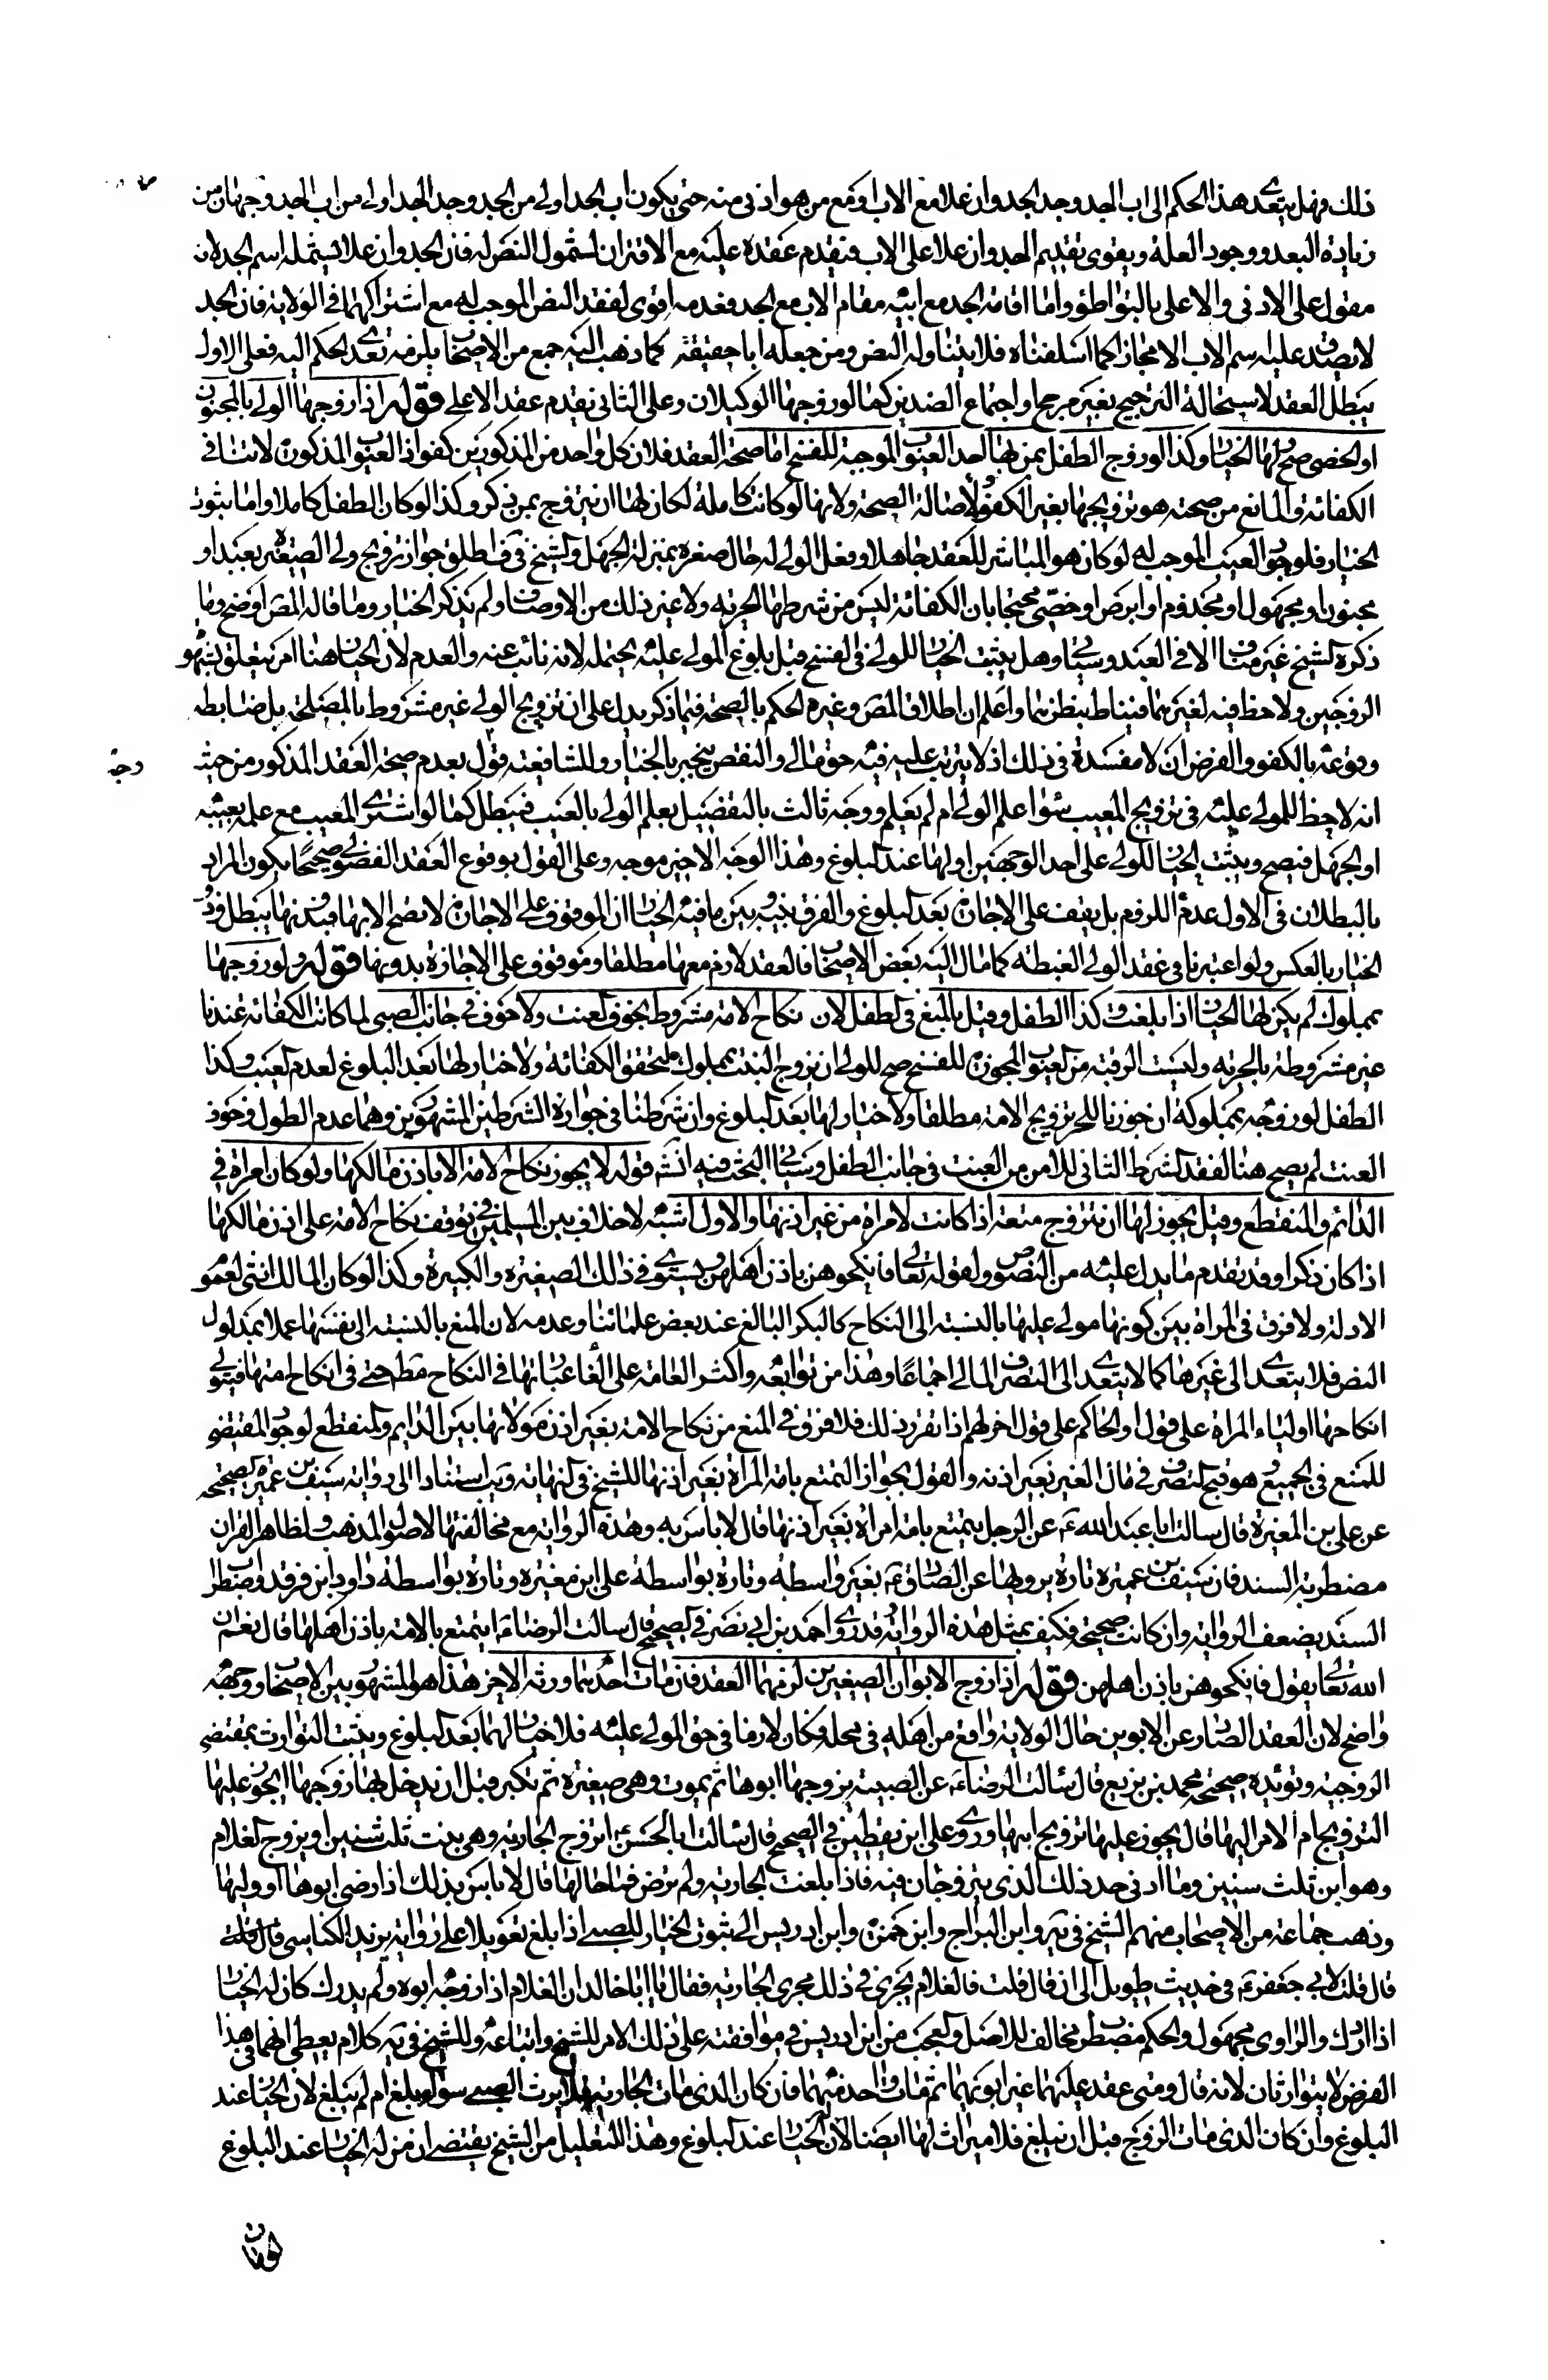 ذلك وهل يتعدى هذا الحكم الى اب الجد وجد الجد وان علا مع الاب او مع من هو ادنى منه حتى يكون اب الجد اولى من الجد وجد الجد اولى من اب الجد وجهان من
زيادة البعد ووجود العلة ويقوى تقديم الجد وان علا على الاب فيقدم عقده عليه مع الاقتران لشمول النص له فان الجد وان علا يشمله اسم الجد لانه
مقول على الادنى والاعلى بالتواطؤ واما اقامة الجد مع ابيه مقام الاب مع الجد فعدمه اقوى لفقد النص الموجب له مع اشتراكهما في الولاية فان الجد
لا يصدق عليه اسم الاب الا مجازا كما اسلفناه فلا يتناوله النص ومن جعله ابا حقيقة كما ذهب اليه جمع من الاصحاب يلزمه تعدى الحكم اليه فعلى الاول
يبطل العقد لاستحالة الترجيح بغير مرجح واجتماع الضدين كما لو زوجها الوكيلان وعلى الثاني يقدم عقد الاعلى قوله اذا زوجها الولى بالمجنون
او الخصى صح ولها الخيار وكذا لو زوج الطفل بمن بها احد العيوب الموجبة للفسخ اما صحة العقد فلان كل واحد من المذكورين كفو اذ العيوب المذكورة لا تنافي
الكفائة والمانع من صحته هو تزويجها بغير الكفو ولاصالة الصحة ولانها لو كانت كاملة لكان لها ان تتزوج بمن ذكر وكذا لو كان الطفل كاملا واما ثبوت
الخيار فلوجود العيب الموجب له لو كان هو المباشر للعقد جاهلا وفعل الولى له حال صغره بمنزلة الجهل والشيخ في ف اطلق جواز تزويج ولى الصغيرة بعبد او
مجنون او مجهول او مجذوم او ابرص او خصى محتجا بان الكفائة ليس من شرطها الحرية ولا غير ذلك من الاوصاف ولم يذكر الخيار وما قاله المص اوضح وما
ذكره الشيخ غير مناف الا في العبد وسياتي وهل يثبت الخيار للولى في الفسخ قبل بلوغ المولى عليه يحتمله لانه نائب عنه والعدم لان الخيار هنا امر يتعلق بشهوة
الزوجين ولا حظ فيه لغيرهما فيناط بنظرهما واعلم ان اطلاق المص وغيره الحكم بالصحة فيما ذكر يدل على ان تزويج الولى غير مشروط بالمصلحة بل ضابطه
وقوعه بالكفو والفرض ان لا مفسدة في ذلك اذ لا يترتب عليه فيه حق مالى والنقص ينجبر بالخيار وللشافعية قول بعدم صحة العقد المذكور من حيث
انه لا حظ للمولى عليه في تزويج المعيب سواء علم الولى ام لم يعلم ووجه ثالث بالتفصيل بعلم الولى بالعيب فيبطل كما لو اشترى المعيب مع علمه بعيبه
او الجهل فيصح ويثبت الخيار للولى على احد الوجهين او لها عند البلوغ وهذا الوجه الاخير موجه وعلى القول بوقوع العقد الفضولى صحيحا يكون المراد
بالبطلان في الاول عدم اللزوم بل يقف على الاجازة بعد البلوغ والفرق بينه وبين ما فيه الخيار ان الموقوف على الاجازة لا يصح الا بها فبدونها يبطل وذو
الخيار بالعكس ولو اعتبرنا في عقد الولى الغبطة كما مال اليه بعض الاصحاب فالعقد لازم معها مطلقا وموقوف على الاجازة بدونها قوله ولو زوجها
بمملوك لم يكن لها الخيار اذا بلغت وكذا الطفل وقيل بالمنع في الطفل لان نكاح الامة مشروط بخوف العنت ولا خوف في جانب الصبى لما كانت الكفائة عندنا
غير مشروطة بالحرية وليست الرقية من العيوب المجوزة للفسخ صح للولى ان يزوج البنت بمملوك لتحقق الكفائة ولا خيار لها بعد البلوغ لعدم العيب وكذا
الطفل لو زوجه بمملوكة ان جوزنا للحر تزويج الامة مطلقا ولا خيار لها بعد البلوغ وان شرطنا في جوازه الشرطين المشهورين وهما عدم الطول وخوف
العنت لم يصح هنا لفقد الشرط الثاني للامن من العنت في جانب الطفل وسياتي البحث فيه انش قوله لا يجوز نكاح الامة الا باذن مالكها ولو كان امراة في
الدائم والمنقطع وقيل يجوز لها ان تتزوج متعة اذا كانت لامراة من غير اذنها والاول اشبه لا خلاف بين المسلمين في توقف نكاح الامة على اذن مالكها
اذا كان ذكرا وقد تقدم ما يدل عليه من النصوص ولقوله تعالى فانكحوهن باذن اهلهن ويستوى في ذلك الصغيرة والكبيرة وكذا لو كان المالك انثى لعموم
الادلة ولا فرق في المراة بين كونها مولى عليها بالنسبة الى النكاح كالبكر البالغ عند بعض علمائنا وعدمه لان المنع بالنسبة الى نفسها عملا بمدلول
النص فلا يتعدى الى غيرها كما لا يتعدى الى التصرف المالى اجماعا وهذا من توابعه واكثر العامة على الغاء عبارتها في النكاح مط حتى في انكاح امتها فيتولى
انكاحها اولياء المراة على قول او الحاكم على قول اخر لهم اذا تقرر ذلك فلا فرق في المنع من نكاح الامة بغير اذن مولاتها بين الدايم والمنقطع لوجود المقتضى
للمنع في الجميع وهو قبح التصرف في مال الغير بغير اذنه والقول بجواز التمتع بامة المراة بغير اذنها للشيخ في النهاية ويب استنادا الى رواية سيف بن عميرة الصحيحة
عن على بن المغيرة قال سالت ابا عبد الله ع عن الرجل يتمتع بامة امراة بغير اذنها قال لا باس به وهذه الرواية مع مخالفتها لاصول المذهب ولظاهر القران
مضطربة السند فان سيف بن عميرة تارة يرويها عن الصادق ع بغير واسطة وتارة بواسطة على ابن مغيرة وتارة بواسطة داود ابن فرقد واضطراب
السند يضعف الرواية وان كانت صحيحة فكيف بمثل هذه الرواية وقد روى احمد بن ابي نصر في الصحيح قال سالت الرضا ع ايتمتع بالامة باذن اهلها قال نعم ان
الله تعالى يقول فانكحوهن باذن اهلهن قوله اذا زوج الابوان الصغيرين لزمهما العقد فان مات احدهما ورثه الاخر هذا هو المشهور بين الاصحاب ووجهه
واضح لان العقد الصادر عن الابوين حال الولاية واقع من اهله في محله فكان لازما في حق المولى عليه فلا خيار لهما بعد البلوغ ويثبت التوارث بمقتضى
الزوجية وتؤيده صحيحة محمد بن بزيع قال سالت الرضا ع عن الصبية يزوجها ابوها ثم يموت وهى صغيرة ثم تكبر قبل ان يدخل بها زوجها ايجوز عليها
التزويج ام الامر اليها قال يجوز عليها تزويج ابيها وروى على ابن يقطين في الصحيح قال سالت ابا الحسن ع اتزوج الجارية وهى بنت ثلث سنين او يزوج الغلام
وهو ابن ثلث سنين وما ادنى حد ذلك الذى يتزوجان فيه فاذا بلغت الجارية ولم ترض فما حالها قال لا باس بذلك اذا رضى ابوها او وليها
وذهب جماعة من الاصحاب منهم الشيخ في ية وابن البراج وابن حمزة وابن ادريس الى ثبوت الخيار للصبى اذا بلغ تعويلا على رواية بريد الكناسى قال قلت
قال قلت لابي جعفر ع في حديث طويل الى ان قال قلت فالغلام يجرى في ذلك مجرى الجارية فقال يا ابا خالد ان الغلام اذا زوجه ابوه ولم يدرك كان له الخيار
اذا ادرك والراوى مجهول والحكم مضطرب مخالف للاصل والعجب من ابن ادريس في موافقته على ذلك الامر للشيخ واتباعه وللشيخ في ية كلام يعطى انهما في هذا
الفرض لا يتوارثان لانه قال ومتى عقد عليهما غير ابويهما ثم مات واحد منهما فان كان الذى مات الجارية فلا يرث الصبى سواء بلغ ام لم يبلغ لان الخيار عند
البلوغ وان كان الذى مات الزوج قبل ان يبلغ فلا ميراث لها ايضا لان لها الخيار عند البلوغ وهذا التعليل من الشيخ يقتضى ان من له الخيار عند البلوغ